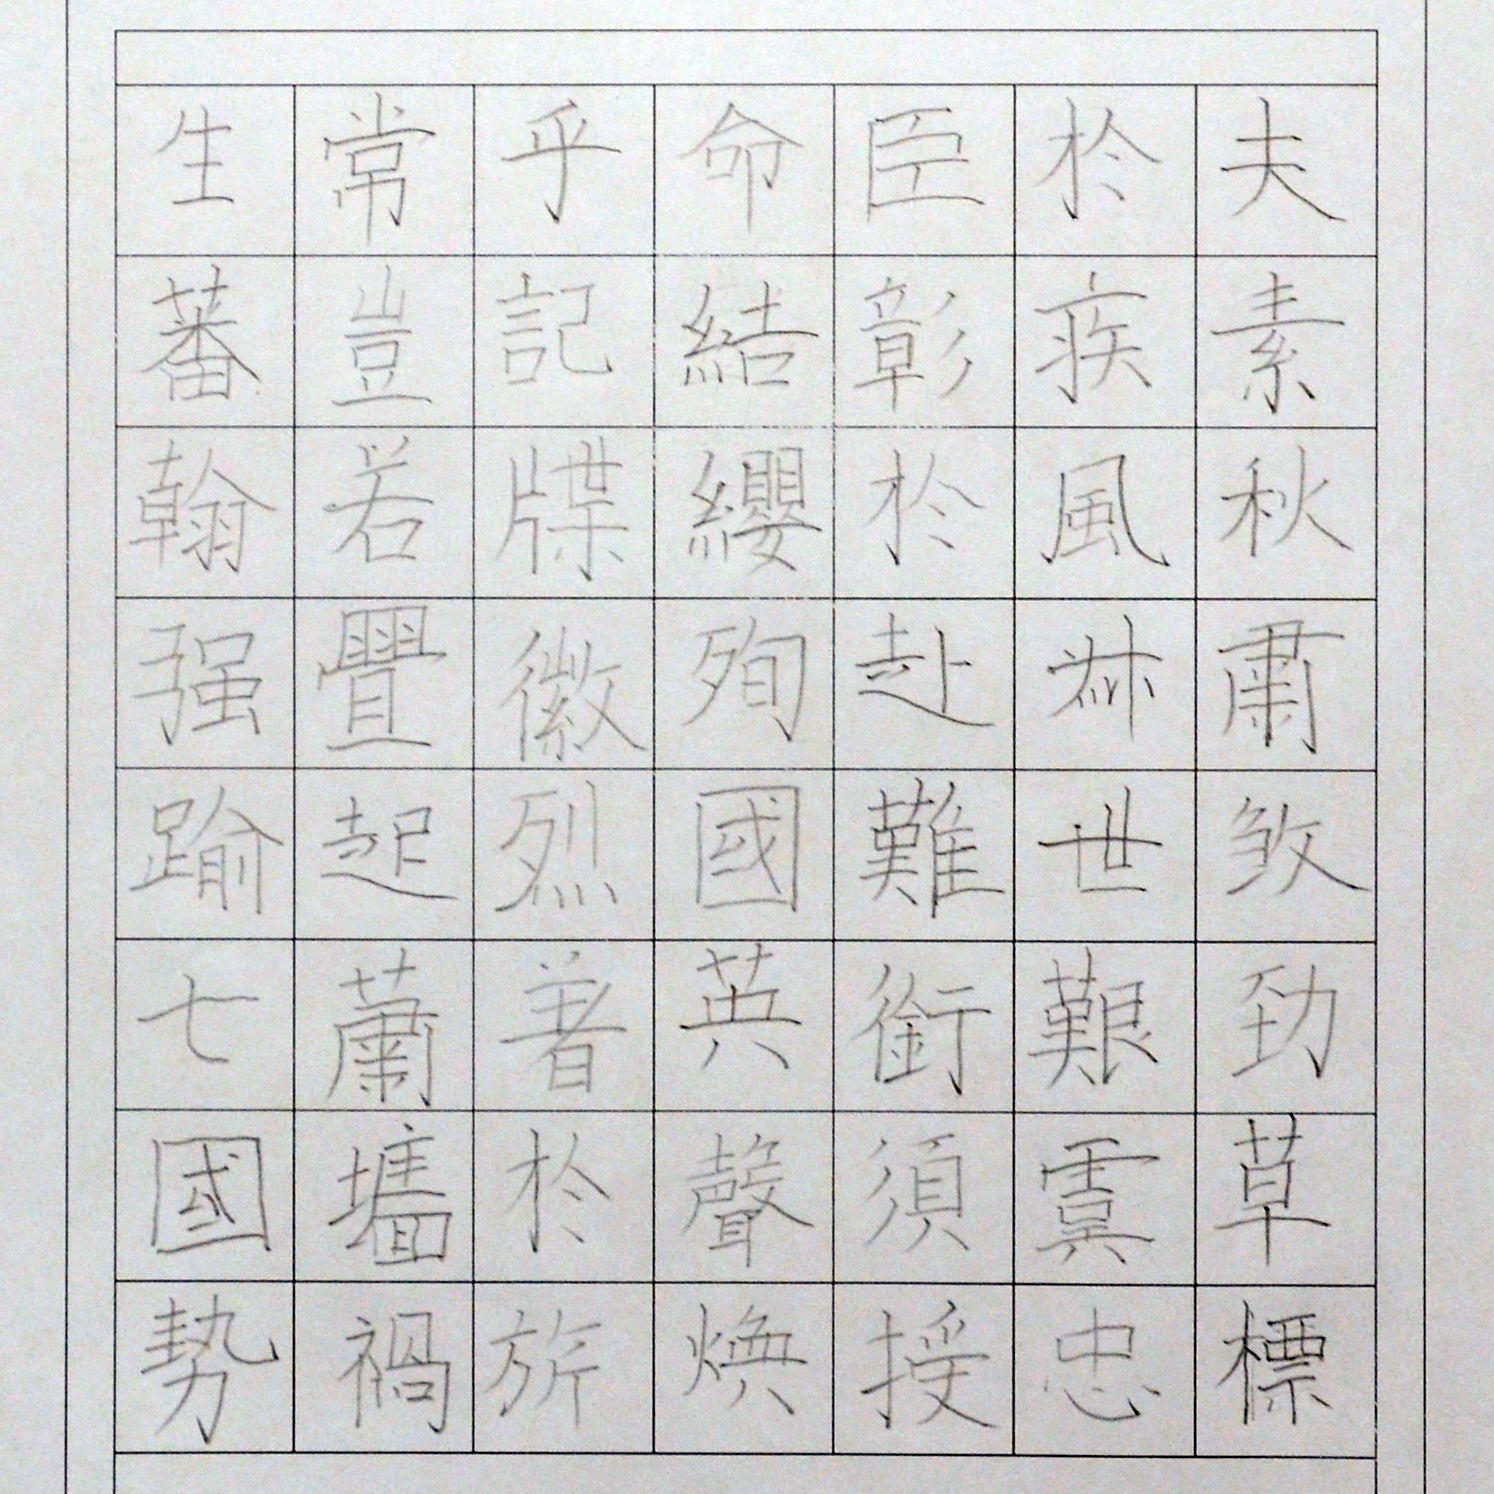 夫素秋肅煞勁草標
於疾風叔世艱虞忠
臣彰於赴難銜須授
命結纓殉國英聲煥
乎記牒徽烈著於旂
常豈若釁起蕭墻禍
生蕃翰强踰七國勢